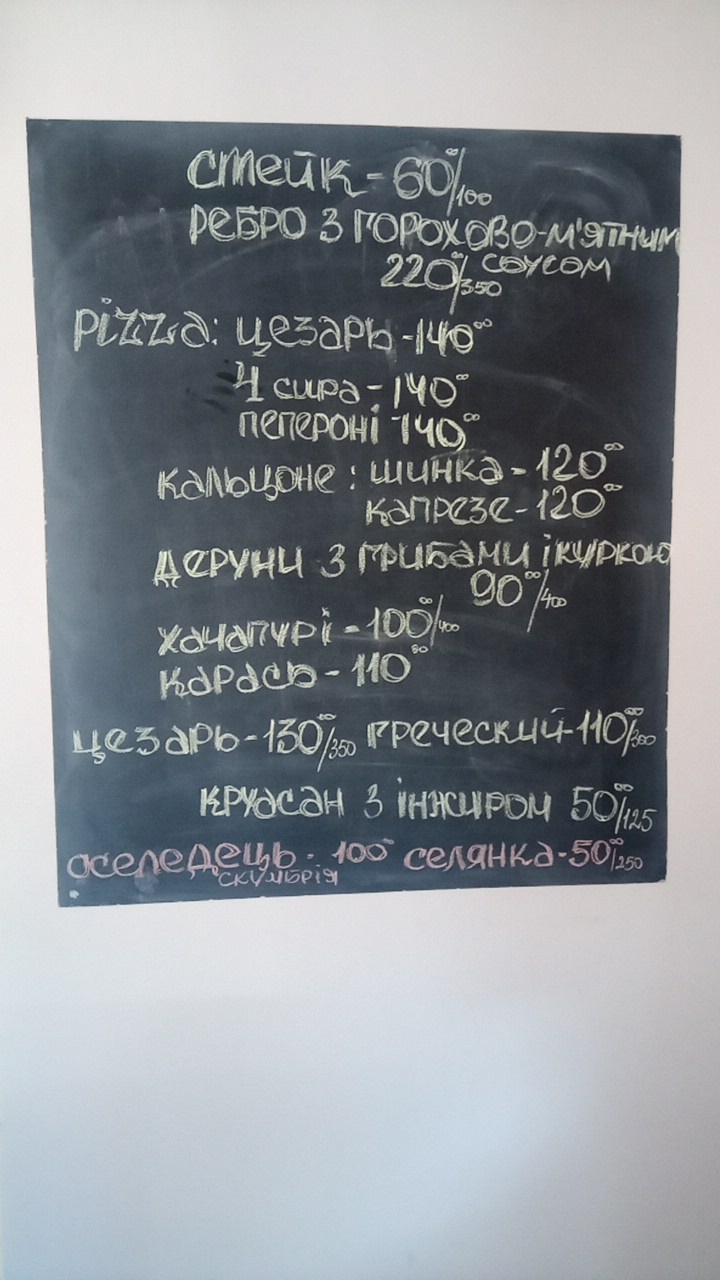 стейк - 60⁰⁰/100
ребро з горохово-м'ятним
220⁰⁰/350 соусом
pizza: цезарь - 140⁰⁰
4 сира - 140⁰⁰
пепероні 140⁰⁰
кальцоне: шинка - 120⁰⁰
капрезе - 120⁰⁰
деруни з грибами і куркою
90⁰⁰/400
хачапурі - 100⁰⁰/400
карась - 110⁰⁰
цезарь - 130⁰⁰/350 греческий - 110⁰⁰/350
круасан з інжиром 50⁰⁰/125
оселедець - 100⁰⁰ селянка - 50⁰⁰/250
скумбрія